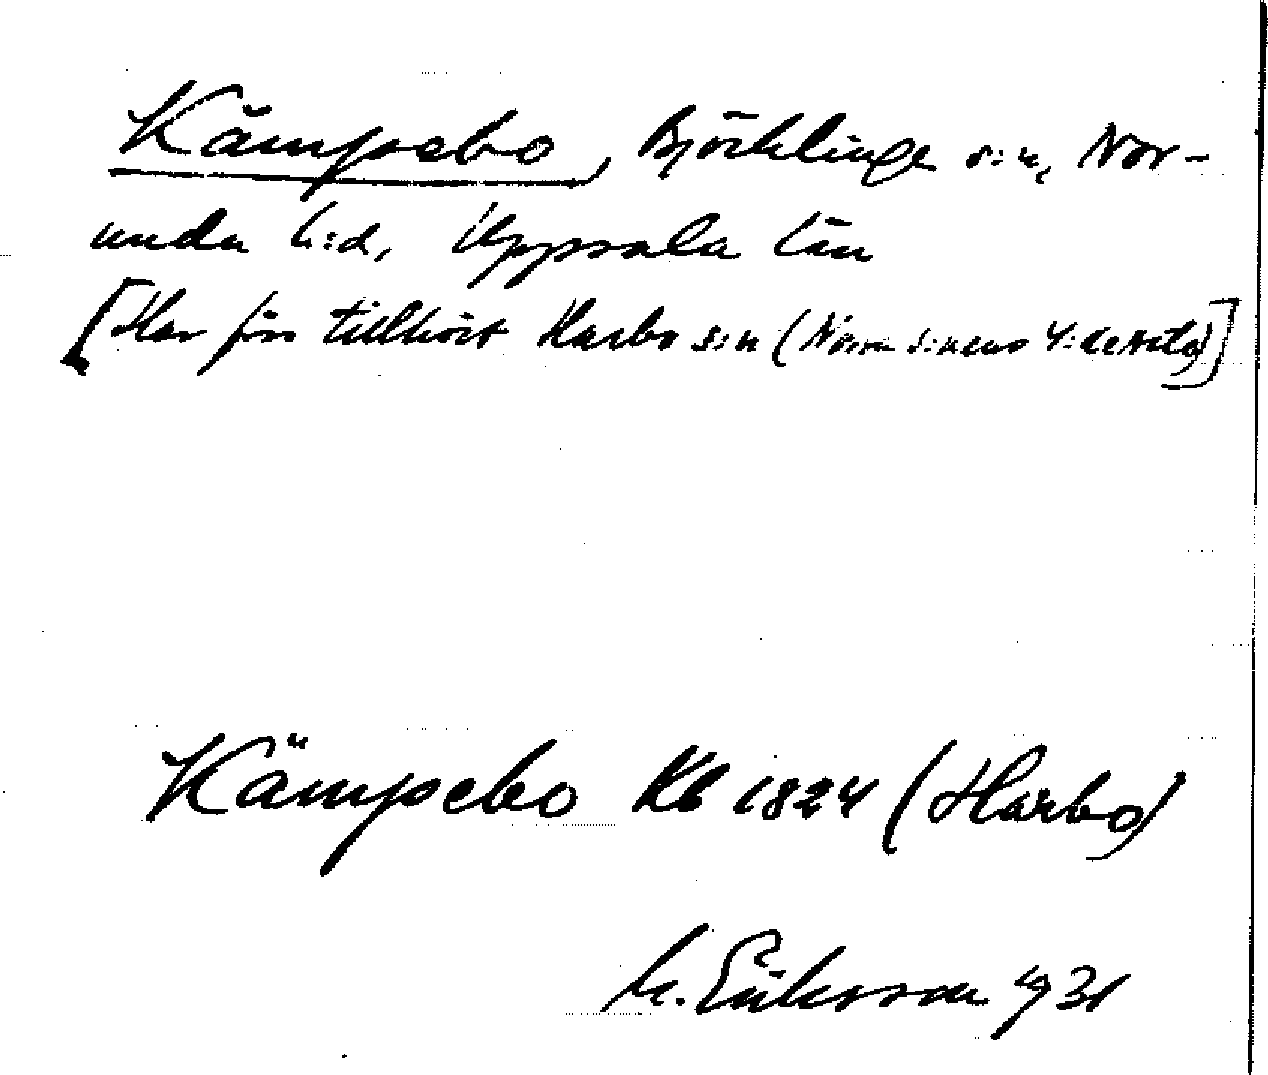 Kämpsebo, Björklinge s:n, Nor-
unda h:d, Uppsala län
[Har förr tillhört Harbo s:n (Norra
Kämpsebo Kb 1824 (Harbo)
M. Eriksson 1931